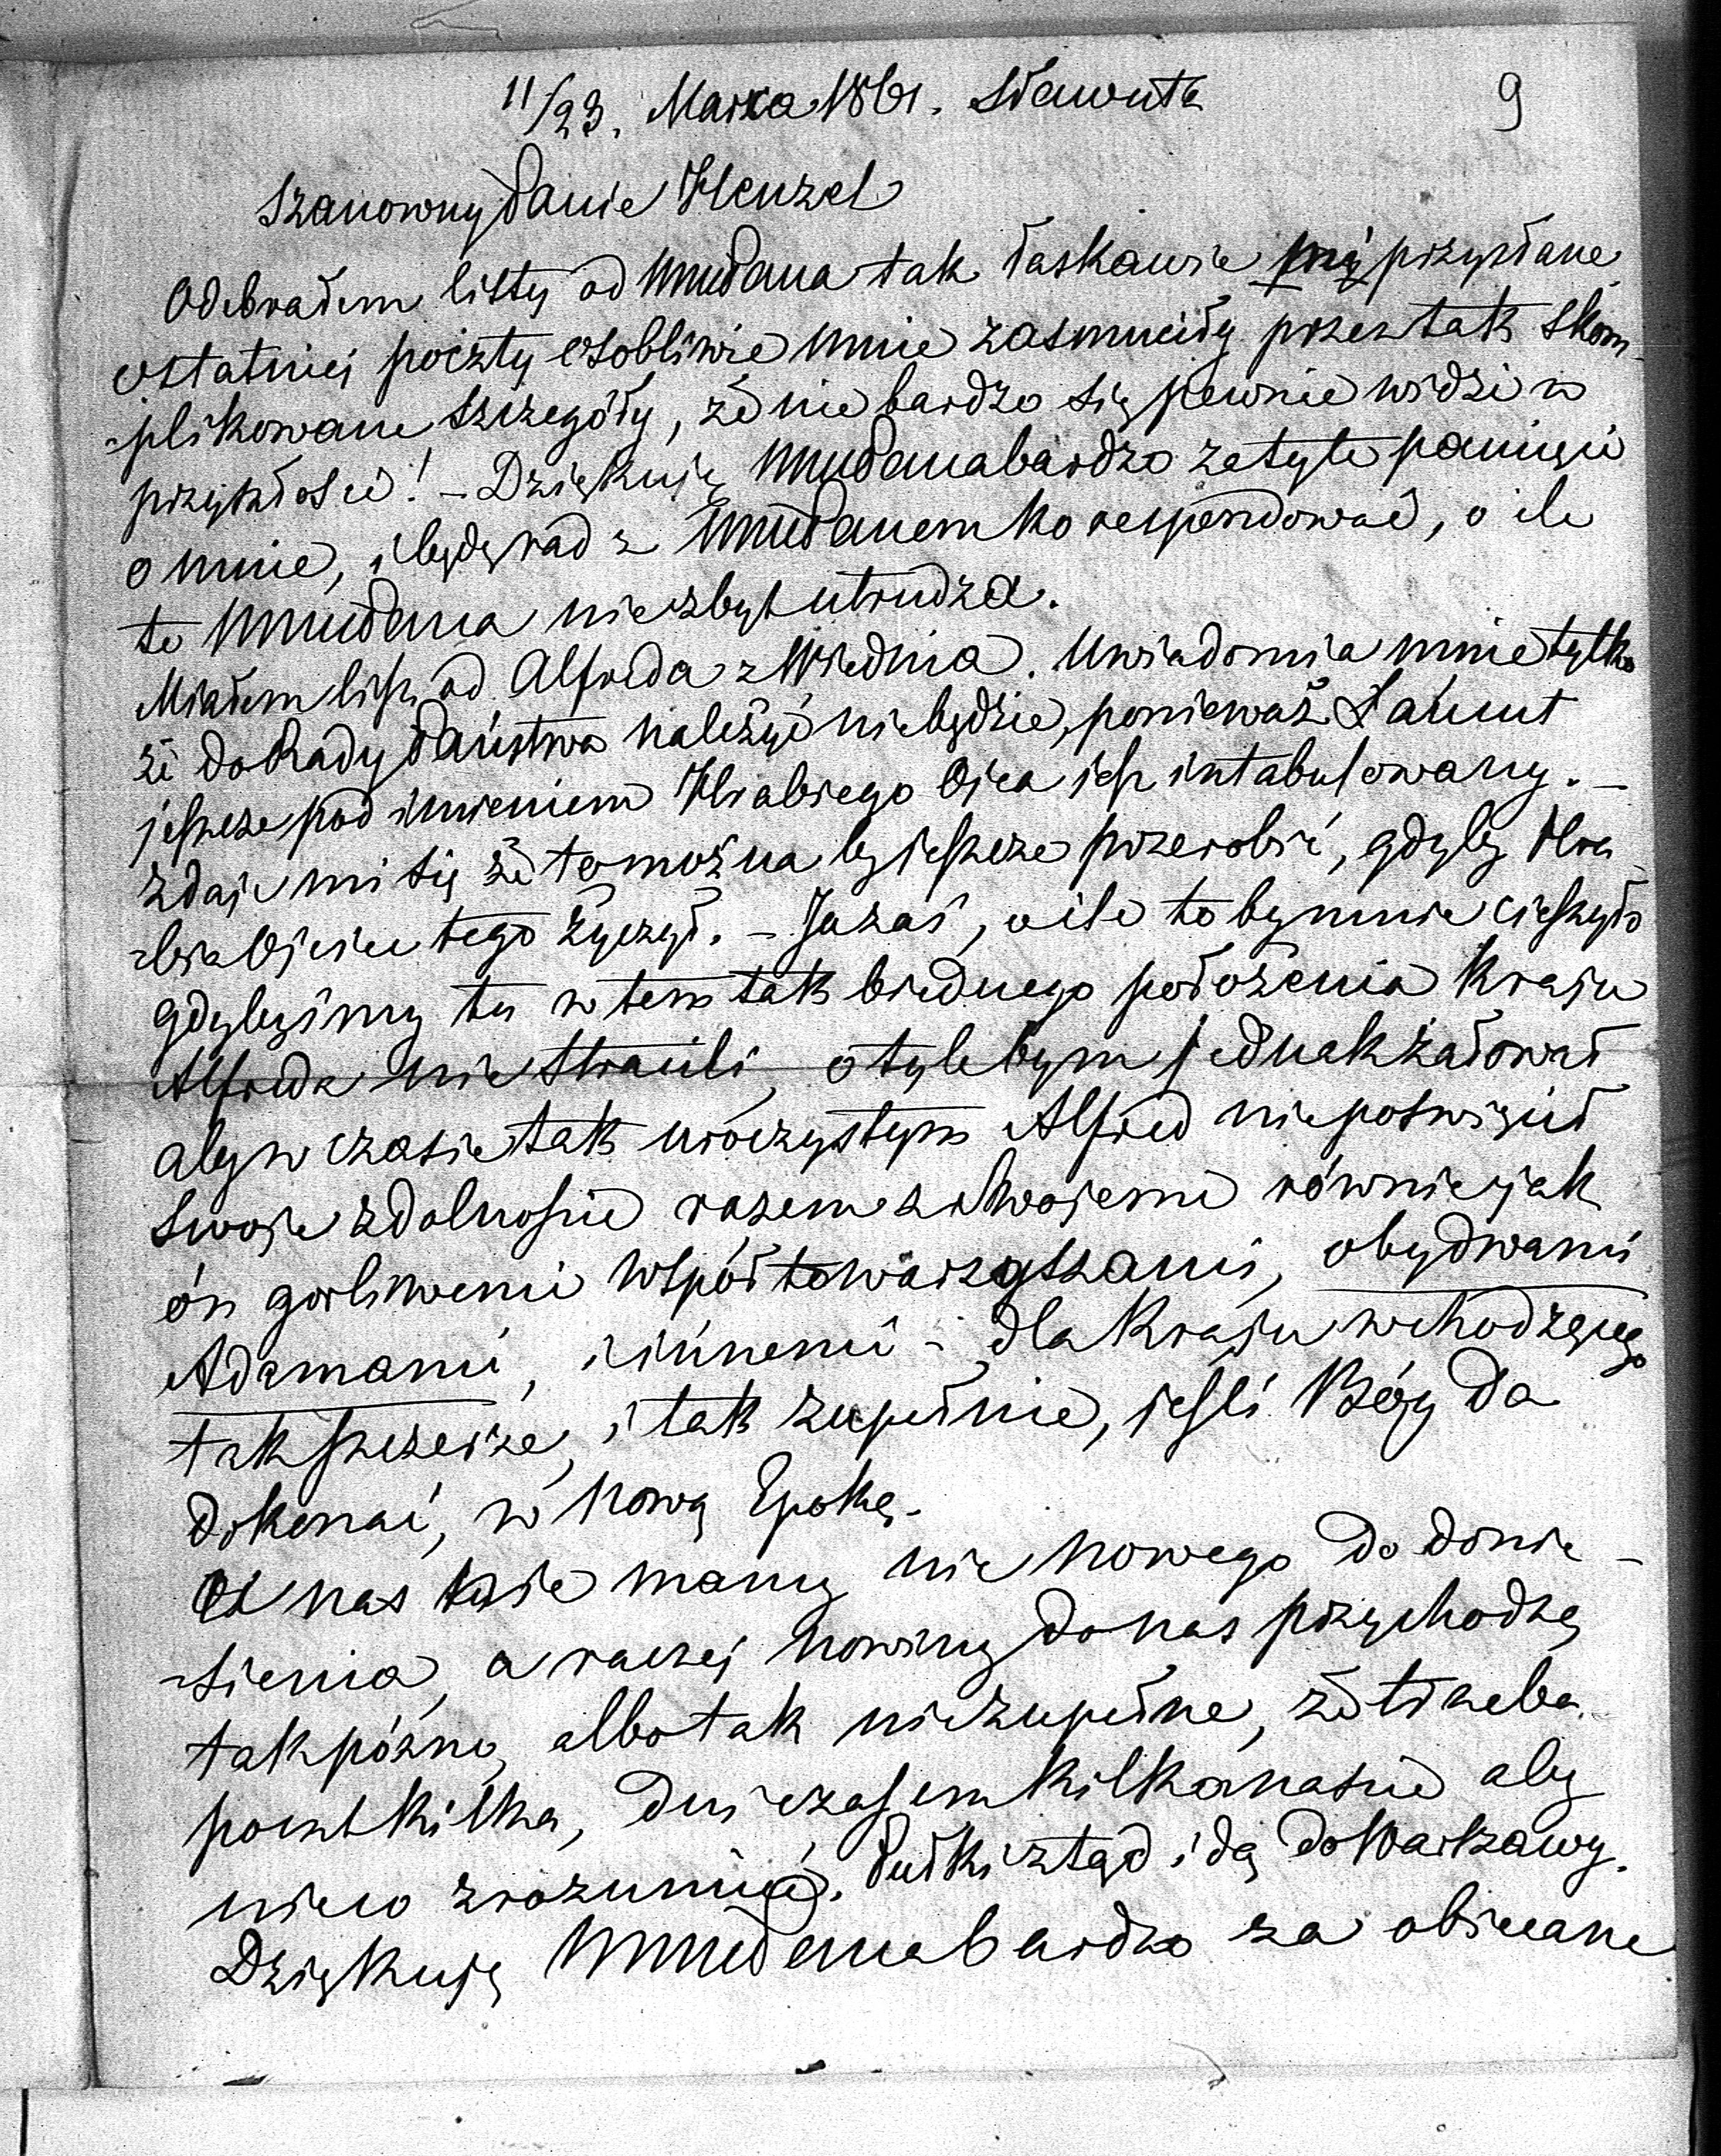 11/23. Marca 1861. Sławuta
9
Szanowny Panie Henzel
Odebrałem listy od WmćPana tak łaskawie mię przysłane,
ostatniej poczty osobliwie mnie zasmuciły przez tak skom-
-plikowane szczegóły, że nie bardzo się pewnie widzi w
przyszłości! – Dziękuję WmćPana bardzo za tyle pamięci
o mnie, i będę rad z WmćPanem korespondować, o ile
to WmćPana niezbyt utrudza.
Miałem list od Alfreda z Wiednia. Uwiadomia mnie tylko
że do Rady Państwa należyć niebędzie, ponieważ Łańcut
jeszcze pod imieniem Hrabiego Ojca jest intabulowany. –
zdaje mi się że to można by jeszcze przerobić, gdyby Hra-
-bia Ojciec tego życzył. – Ja zaś, o ile to by mnie cieszyło
gdybyśmy tu w tem tak biednego położenia Kraju
Alfreda nie stracili, o tyle bym jednak żałował
aby w czasie tak uroczystym Alfred niepoświęcił
swoje zdolności razem z swojemi równie jak
ón gorliwemi współtowarzyszami, obydwami
Adamami, i innemi – dla Kraju wchodzącego
tak szczerze, i tak zupełnie, jeśli Bóg da
dokonać, w nową Epokę.
U nas tu nie mamy nic nowego do donie-
-sienia, a raczej nowiny do nas przychodzą
tak późno, albo tak niezupełne, że trzeba
poczt kilka, dni czasem kilkanaście aby
nieco zrozumieć. Pułki ztąd idą do Warszawy.
Dziękuję WmćPana bardzo za obiecane